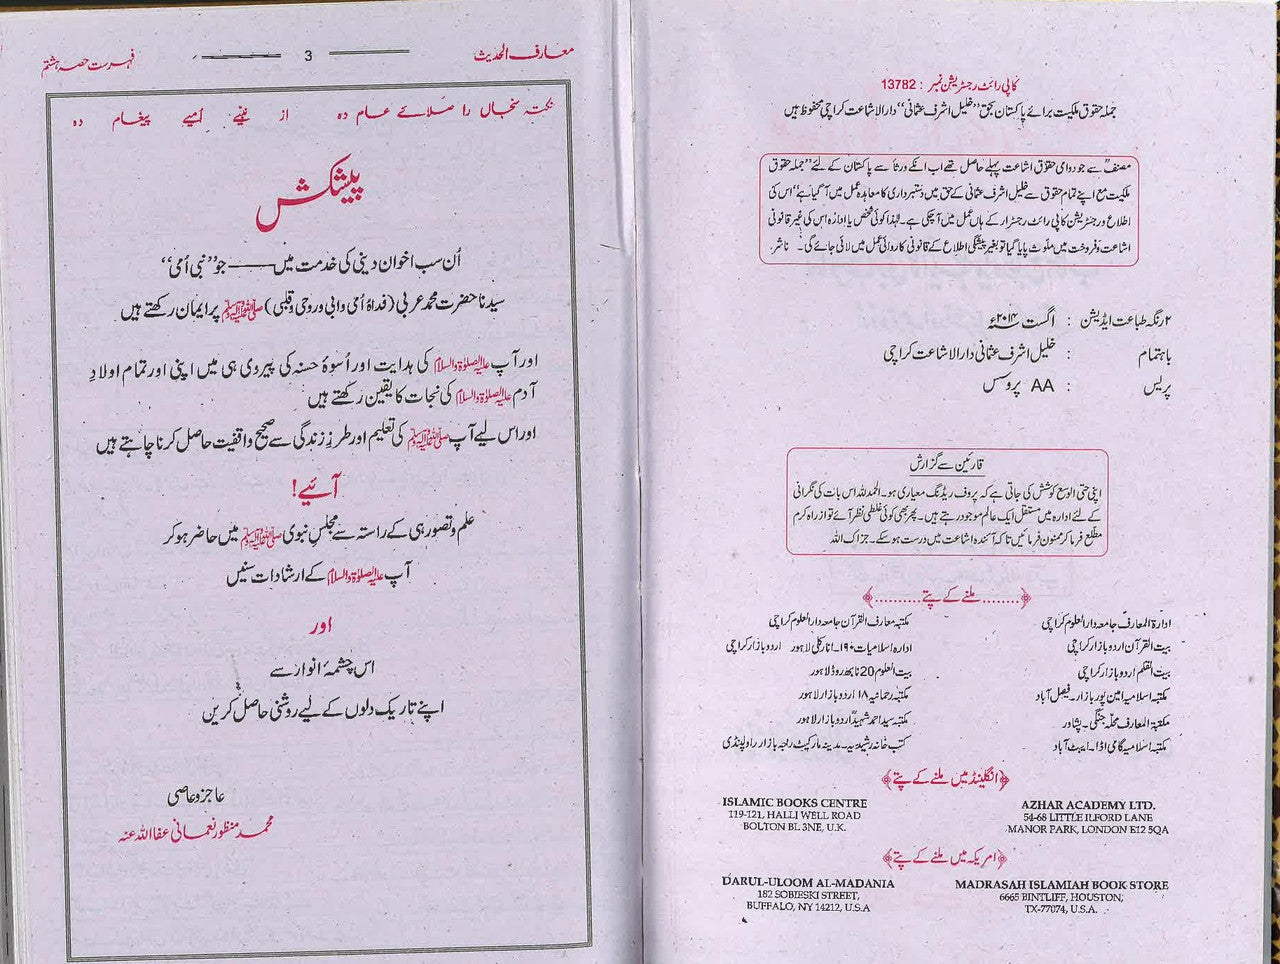 کاپی رائٹ رجسٹریشن نمبر : 13782
جملہ حقوق ملکیت برائے پاکستان بحق ”خلیل اشرف عثمانی“ دارالاشاعت کراچی محفوظ ہیں
مصنفؒ سے جو دوامی حقوق اشاعت پہلے حاصل تھے اب انکے ورثأ سے پاکستان کے لئے ”جملہ حقوق
ملکیت مع اپنے تمام حقوق سے خلیل اشرف عثمانی کے حق میں دستبرداری کا معاہدہ عمل میں آگیا ہے“ اس کی
اطلاع ورجسٹریشن کاپی رائٹ رجسٹرار کے ہاں عمل میں آچکی ہے۔ لہٰذا کوئی شخص یا ادارہ اس کی غیر قانونی
اشاعت وفروخت میں ملوث پایا گیا تو بغیر پیشگی اطلاع کے قانونی کاروائی عمل میں لائی جائے گی۔ ناشر
۲ رنگہ طباعت ایڈیشن : اگست ۲۰۱۴ء
باہتمام : خلیل اشرف عثمانی دارالاشاعت کراچی
پریس : AA پروسس
قارئین سے گزارش
اپنی حتی الوسع کوشش کی جاتی ہے کہ پروف ریڈنگ معیاری ہو۔ الحمدللہ اس بات کی نگرانی
کے لئے ادارہ میں مستقل ایک عالم موجود رہتے ہیں۔ پھر بھی کوئی غلطی نظر آئے تو از راہ کرم
مطلع فرما کر ممنون فرمائیں تاکہ آئندہ اشاعت میں درست ہو سکے۔ جزاک اللہ
﴿........ ملنے کے پتے .........﴾
ادارۃ المعارف جامعہ دارالعلوم کراچی
بیت القرآن اردو بازار کراچی
بیت القلم اردو بازار کراچی
مکتبہ اسلامیہ امین پور بازار۔ فیصل آباد
مکتبۃ المعارف محلہ جنگی۔ پشاور
مکتبہ اسلامیہ گامی اڈا۔ ایبٹ آباد
مکتبہ معارف القرآن جامعہ دارالعلوم کراچی
ادارہ اسلامیات ۱۹۰۔ انارکلی لاہور اردو بازار کراچی
بیت العلوم 20 نابھہ روڈ لاہور
مکتبہ رحمانیہ ۱۸ اردو بازار لاہور
مکتبہ سید احمد شہیدؒ اردو بازار لاہور
کتب خانہ رشیدیہ۔ مدینہ مارکیٹ راجہ بازار راولپنڈی
﴿انگلینڈ میں ملنے کے پتے﴾
ISLAMIC BOOKS CENTRE
119-121, HALLI WELL ROAD
BOLTON BL 3NE, U.K.
AZHAR ACADEMY LTD.
54-68 LITTLE ILFORD LANE
MANOR PARK, LONDON E12 5QA
﴿امریکہ میں ملنے کے پتے﴾
DARUL-ULOOM AL-MADANIA
182 SOBIESKI STREET,
BUFFALO, NY 14212, U.S.A
MADRASAH ISLAMIAH BOOK STORE
6665 BINTLIFF, HOUSTON,
TX-77074, U.S.A.
معارف الحدیث
3
فہرست حصہ ہشتم
نکتہ سنجاں را صلائے عام دہ از نبیے اُمیے پیغام دہ
پیشکش
اُن سب اخوان دینی کی خدمت میں —— جو ”نبی اُمی“
سیدنا حضرت محمد عربی (فداہ اُمی وابی وروحی وقلبی) ﷺ پر ایمان رکھتے ہیں
اور آپ علیہ الصلوٰۃ والسلام کی ہدایت اور اُسوۂ حسنہ کی پیروی ہی میں اپنی اور تمام اولادِ
آدم علیہ الصلوٰۃ والسلام کی نجات کا یقین رکھتے ہیں
اور اس لیے آپ ﷺ کی تعلیم اور طرزِ زندگی سے صحیح واقفیت حاصل کرنا چاہتے ہیں
آئیے!
علم وتصور ہی کے راستہ سے مجلسِ نبوی ﷺ میں حاضر ہو کر
آپ علیہ الصلوٰۃ والسلام کے ارشادات سنیں
اور
اس چشمۂ انوار سے
اپنے تاریک دلوں کے لیے روشنی حاصل کریں
عاجز و عاصی
محمد منظور نعمانی عفا اللہ عنہ